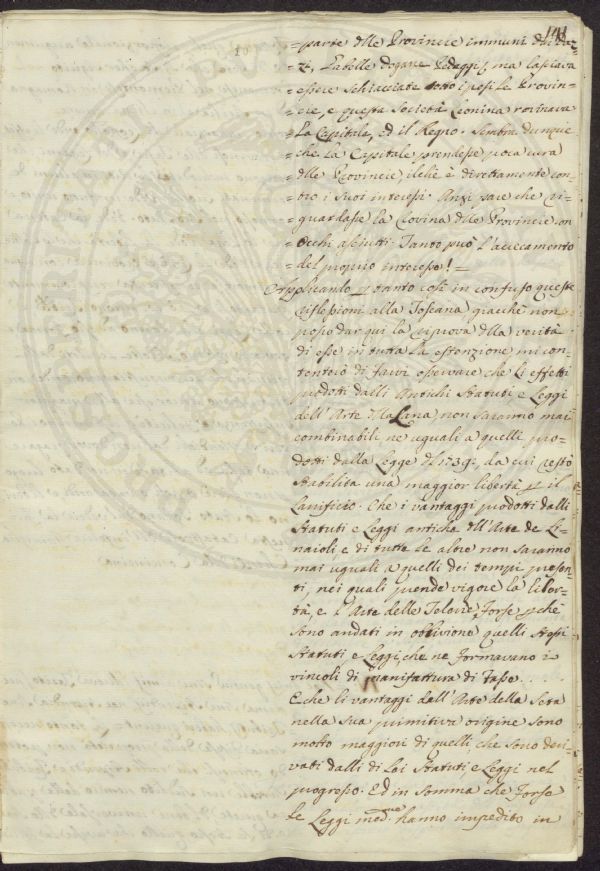 141
=parte dlle Provincie immuni da Daz=
=zi, Gabelle Dogane Pedaggi, ma lasciava
=essere schiacciate sotto i pesi le Provin=
=cie, e questa Società Leonina rovinava
=La Capitale, ed il Regno. Sembra dunque
=che la Capitale prendesse poca cura
=dlle Provincie, ilchè è direttamente con=
=tro i suoi interessi. Anzi pare che ri=
=guardasse la rovina dlle Provincie con
=occhi asciutti. Tanto può l'acciecamento
=del proprio interesse! =
Applicando p tanto così in confuso queste
riflessioni alla Toscana giacchè non
posso dar qui la riprova dlla verità
di esse in tutta la estenzione, mi con=
tenterò di farvi osservare che li effetti
prodotti dalli Antichi Statuti e Leggi
dell'Arte dlla Lana non saranno mai
combinabili ne uguali a quelli pro=
dotti dalla Legge dl 1739:, da cui restò
stabilita una maggior libertà p il
Lanificio. Che i vantaggi prodotti dalli
Statuti e Leggi antiche dll'Arte de Li=
naioli, e di tutte le altre non saranno
mai uguali a quelli dei tempi presen=
ti, nei quali prende vigore la liber=
tà, e l'Arte delle Telerie, forse pchè
sono andati in oblivione quelli stessi
Statuti e Leggi, che ne formavano i
vincoli di manifattura di Tasse....
E che li vantaggi dall'Arte della Seta
nella sua primitiva origine sono
molto maggiori di quelli, che sono deri=
vati dalli di Lei Statuti e Leggi nel
progresso. Ed in somma che forse
le Leggi med:me hanno impedito in